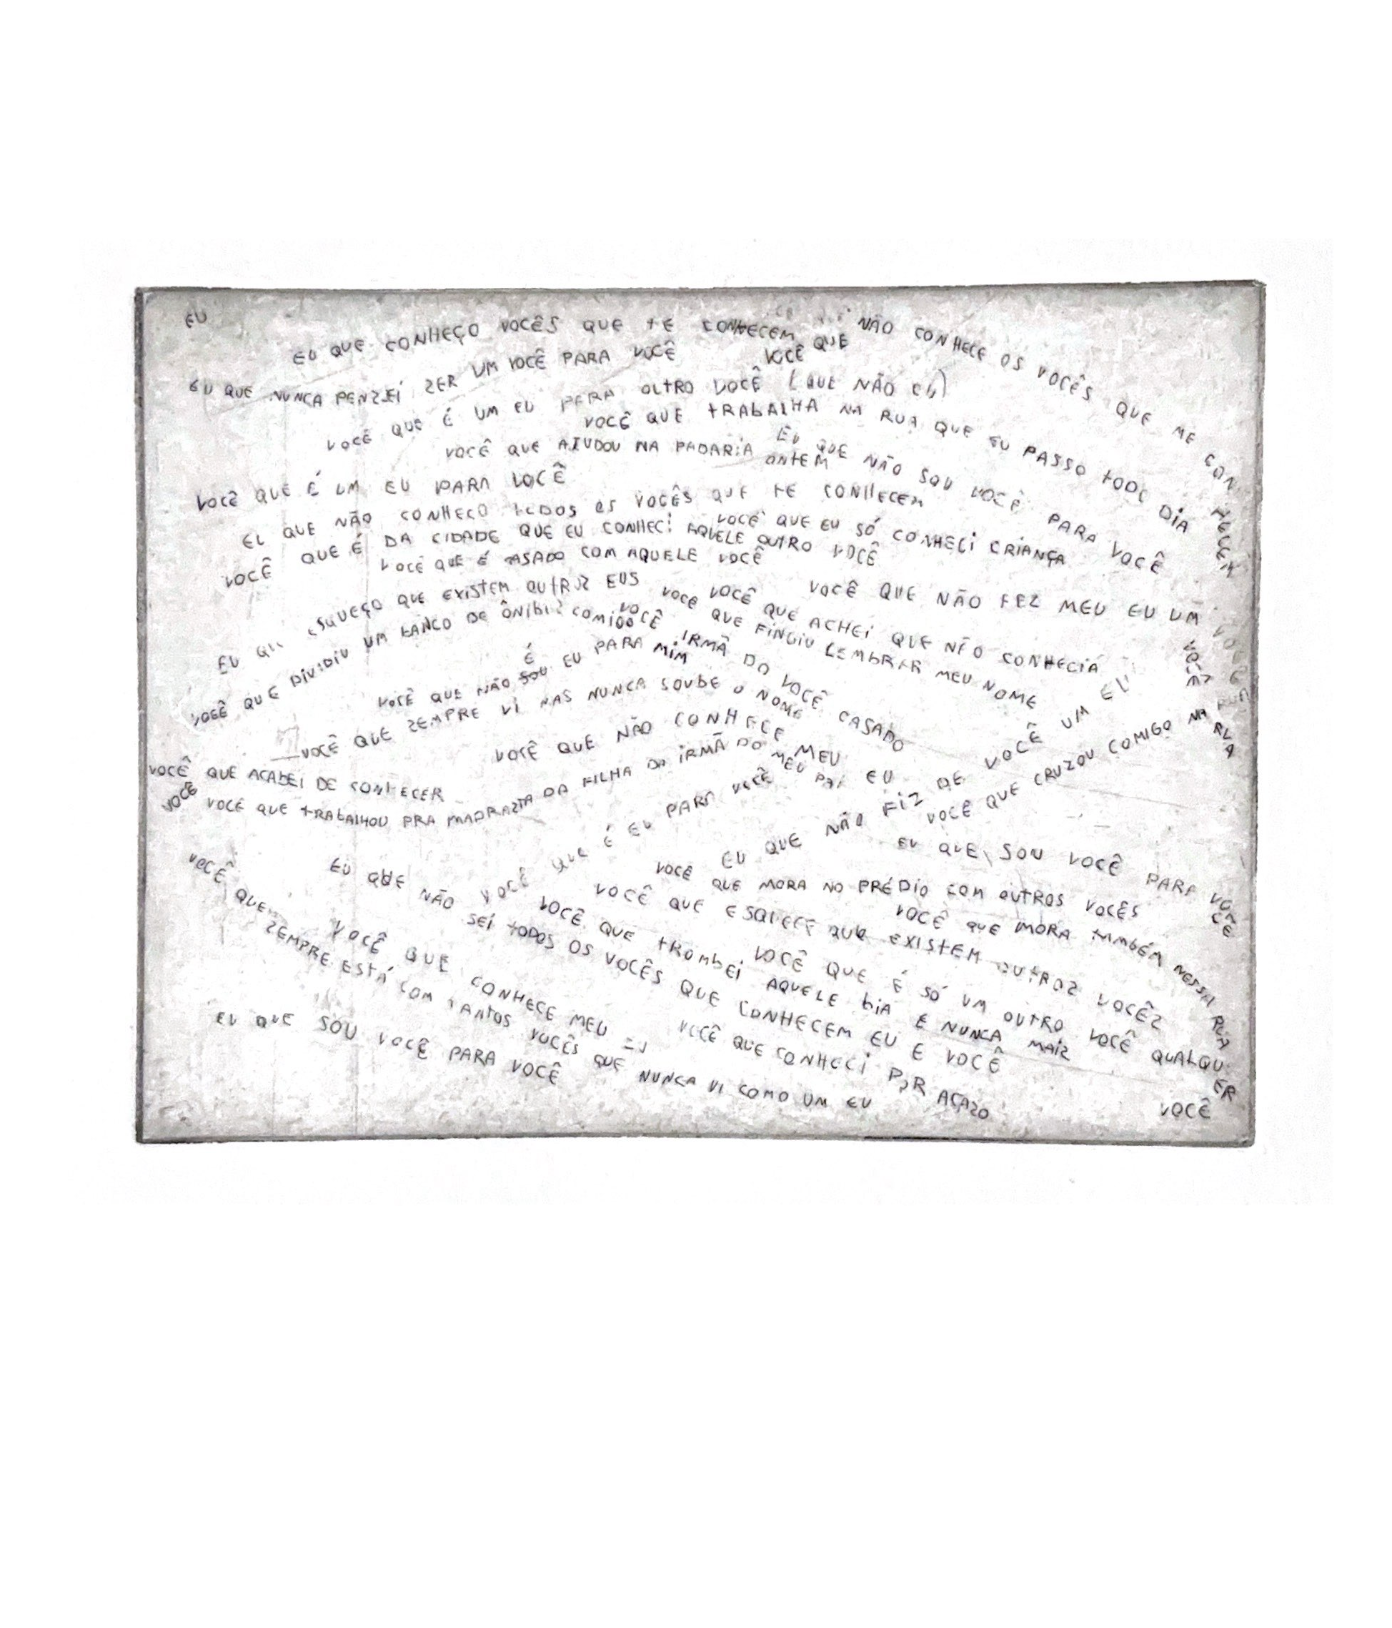 EU
EU QUE CONHEÇO VOCÊS QUE TE CONHECEM
VOCÊ QUE NÃO CONHECE OS VOCÊS QUE ME CONHECEM
EU QUE NUNCA PENSEI SER UM VOCÊ PARA VOCÊ
VOCÊ QUE É UM EU PARA OUTRO VOCÊ (QUE NÃO EU)
VOCÊ QUE TRABALHA NA RUA QUE EU PASSO TODO DIA
VOCÊ QUE AJUDOU NA PADARIA ONTEM
EU QUE NÃO SOU VOCÊ PARA VOCÊ
VOCÊ QUE É UM EU PARA VOCÊ
EU QUE NÃO CONHEÇO TODOS OS VOCÊS QUE TE CONHECEM
VOCÊ QUE EU SÓ CONHECI CRIANÇA
VOCÊ QUE É DA CIDADE QUE EU CONHECI AQUELE OUTRO VOCÊ
VOCÊ QUE É CASADO COM AQUELE VOCÊ
VOCÊ QUE NÃO FEZ MEU EU UM VOCÊ
EU QUE ESQUEÇO QUE EXISTEM OUTROS EUS
VOCÊ QUE ACHEI QUE NÃO CONHECIA
VOCÊ QUE FINGIU LEMBRAR MEU NOME
VOCÊ QUE DIVIDIU UM BANCO DE ÔNIBUS COMIGO
VOCÊ IRMÃ DO VOCÊ CASADO
VOCÊ QUE NÃO É EU PARA MIM
VOCÊ QUE SEMPRE VI MAS NUNCA SOUBE O NOME
VOCÊ QUE NÃO CONHECE MEU EU
VOCÊ QUE ACABEI DE CONHECER
VOCÊ
VOCÊ QUE TRABALHOU PRA MADRASTA DA FILHA DA IRMÃ DO MEU PAI
EU QUE NÃO FIZ DE VOCÊ UM EU
VOCÊ
VOCÊ QUE CRUZOU COMIGO NA RUA
VOCÊ QUE É EU PARA VOCÊ
EU QUE SOU VOCÊ PARA VOCÊ
VOCÊ QUE MORA NO PRÉDIO COM OUTROS VOCÊS
VOCÊ QUE MORA TAMBÉM NESSA RUA
VOCÊ QUE ESQUECE QUE EXISTEM OUTROS VOCÊS
VOCÊ QUE TROMBEI AQUELE DIA E NUNCA MAIS
VOCÊ QUE É SÓ UM OUTRO VOCÊ QUALQUER
EU QUE NÃO SEI TODOS OS VOCÊS QUE CONHECEM EU E VOCÊ
VOCÊ QUE CONHECE MEU EU
VOCÊ QUE SEMPRE ESTÁ COM TANTOS VOCÊS QUE NUNCA VI COMO UM EU
VOCÊ QUE CONHECI POR ACASO
EU QUE SOU VOCÊ PARA VOCÊ
VOCÊ